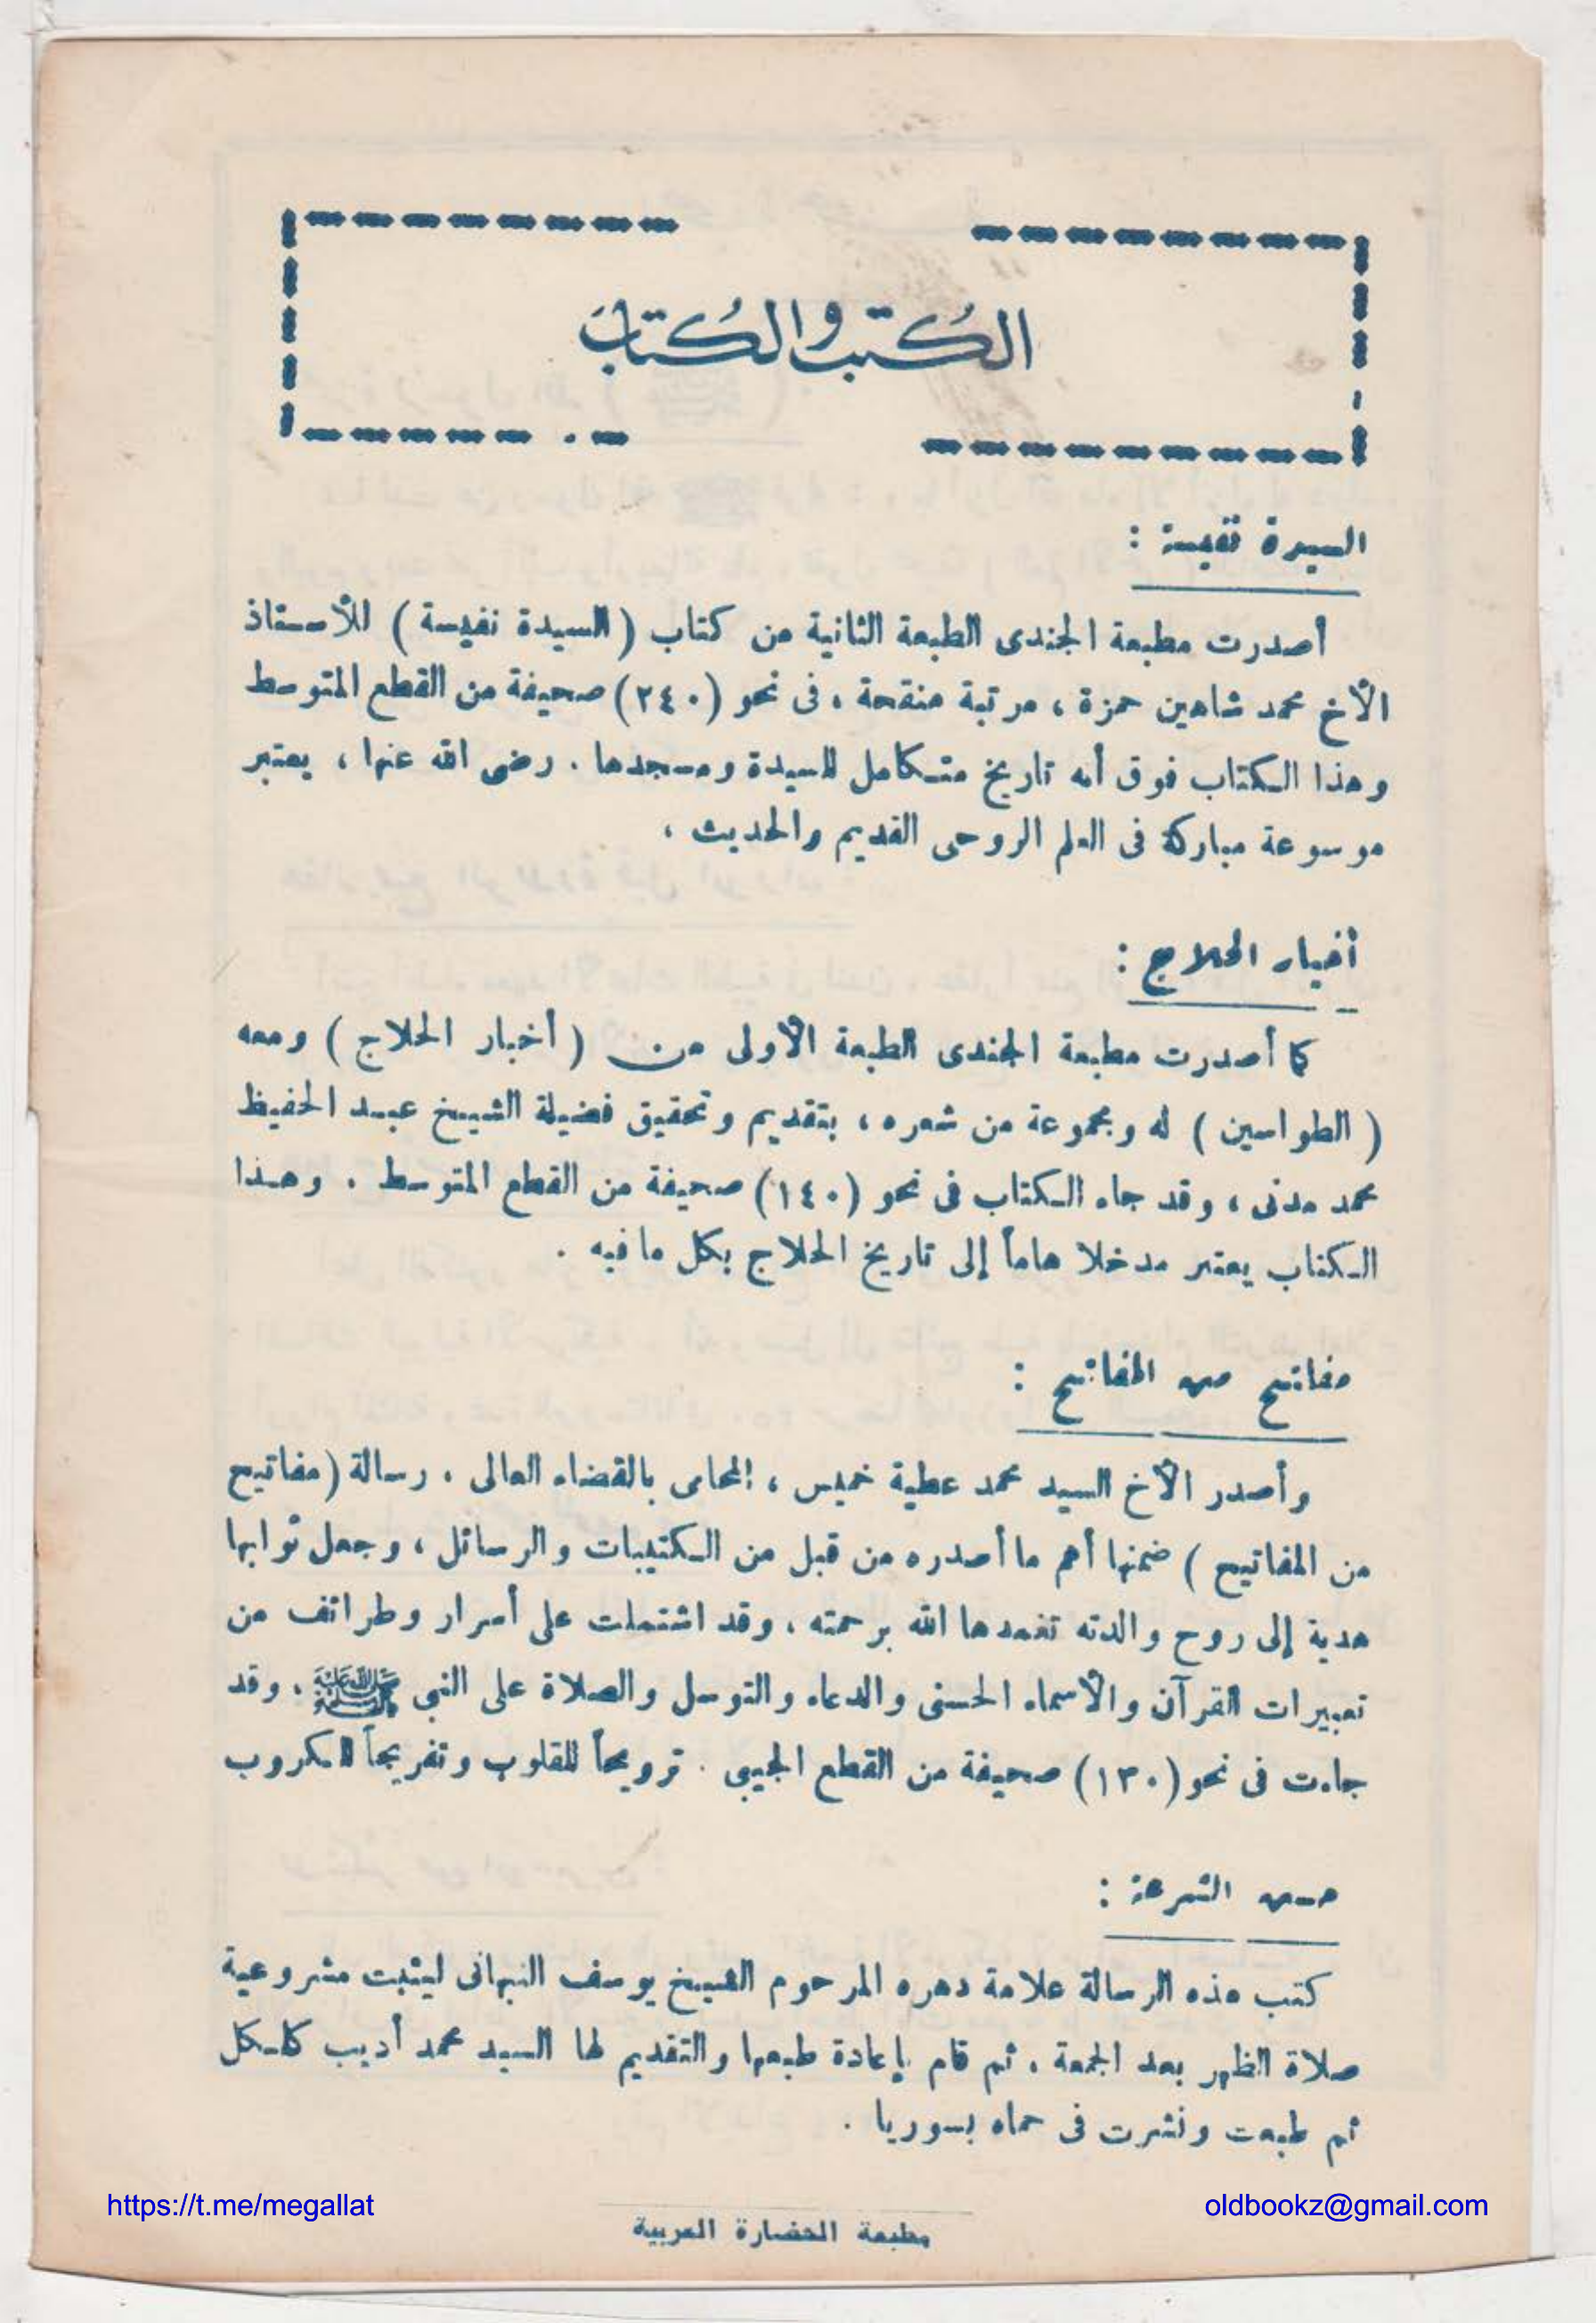 الكُتب والكُتاب
السيدة نفيسة :
أصدرت مطبعة الجندى الطبعة الثانية من كتاب ( السيدة نفيسة ) للأستاذ
الأخ محمد شاهين حمزة ، مرتبة منقحة ، فى نحو (٢٤٠) صحيفة من القطع المتوسط
وهذا الكتاب فوق أنه تاريخ متكامل للسيدة ومسجدها . رضى الله عنها ، يعتبر
موسوعة مباركة فى العلم الروحى القديم والحديث ،
أخبار الحلاج :
كما أصدرت مطبعة الجندى الطبعة الأولى من ( أخبار الحلاج ) ومعه
( الطواسين ) له ومجموعة من شعره ، بتقديم وتحقيق فضيلة الشيخ عبد الحفيظ
محمد مدنى ، وقد جاء الكتاب فى نحو (١٤٠) صحيفة من القطع المتوسط . وهذا
الكتاب يعتبر مدخلا هاماً إلى تاريخ الحلاج بكل ما فيه .
مفاتيح من المفاتيح :
وأصدر الأخ السيد محمد عطية خميس ، المحامى بالقضاء العالى ، رسالة (مفاتيح
من المفاتيح ) ضمنها أهم ما أصدره من قبل من الكتيبات والرسائل ، وجعل ثوابها
هدية إلى روح والدته تغمدها الله برحمته ، وقد اشتملت على أسرار وطرائف من
تعبيرات القرآن والأسماء الحسنى والدعاء والتوسل والصلاة على النبى ﷺ ، وقد
جاءت فى نحو (١٣٠) صحيفة من القطع الجيبى . ترويحاً للقلوب وتفريجاً للكروب
حسن الشرعة :
كتب هذه الرسالة علامة دهره المرحوم الشيخ يوسف النبهانى ليثبت مشروعية
صلاة الظهر بعد الجمعة ، ثم قام بإعادة طبعها والتقديم لها السيد محمد أديب كلكل
ثم طبعت ونشرت فى حماه بسوريا .
https://t.me/megallat
oldbookz@gmail.com
مطبعة الحضارة العربية